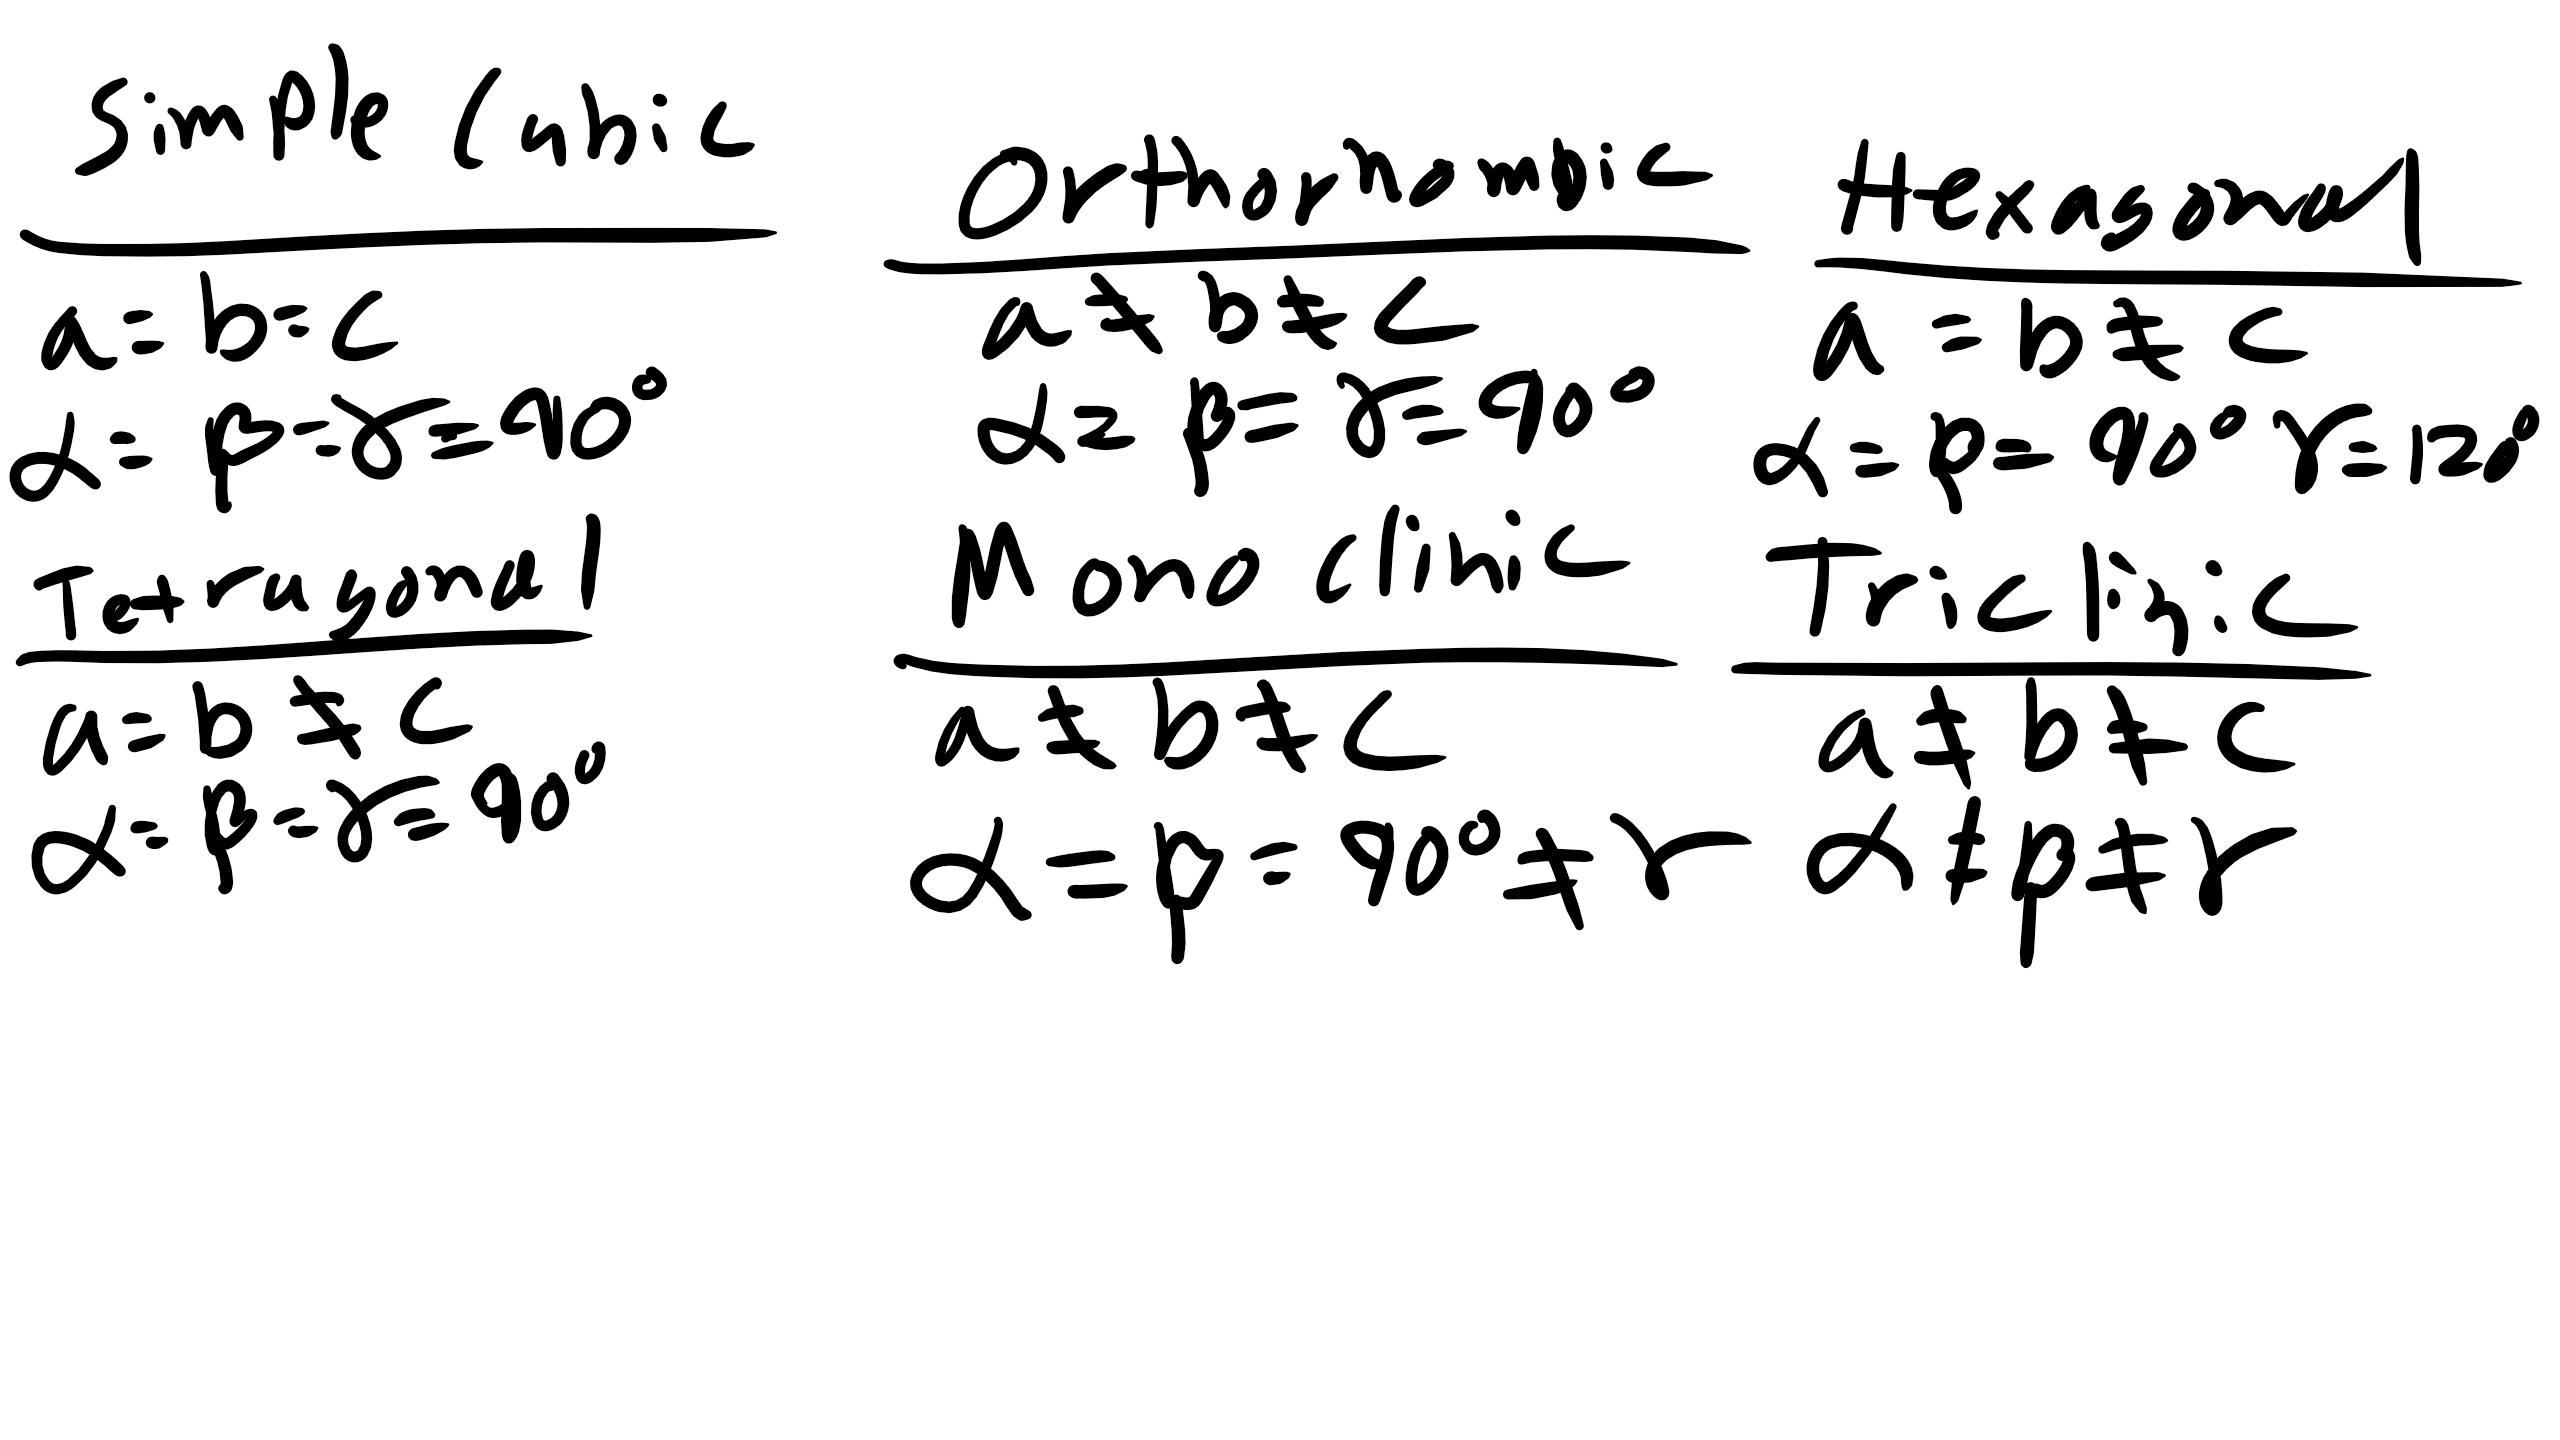 Simple Cubic
a = b = c
α = β = γ = 90°
Tetragonal
a = b ≠ c
α = β = γ = 90°
Orthorhombic
a ≠ b ≠ c
α = β = γ = 90°
Monoclinic
a ≠ b ≠ c
α = β = 90° ≠ γ
Hexagonal
a = b ≠ c
α = β = 90° γ = 120°
Triclinic
a ≠ b ≠ c
α ≠ β ≠ γ